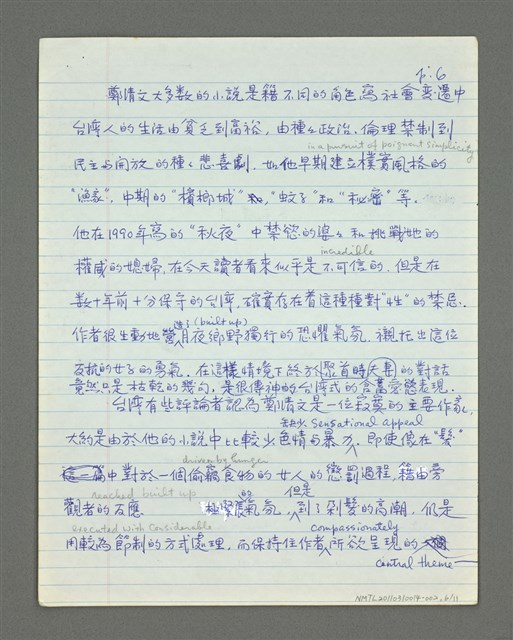 p: 6
鄭清文大多数的小說是藉不同的角色寫社會变遷中
台湾人的生活由貧乏到富裕，由種々政治、倫理禁制到
in a pursuit of poignant simplicity
民主与開放的種々悲喜劇．如他早期建立樸實風格的
"漁家"，中期的"檳榔城"，"蚊子"和"秘密"等．
他在1990年寫的"秋夜"中禁慾的婆々和挑戰她的
incredible
權威的媳婦，在今天讀者看來似乎是不可信的．但是在
数十年前十分保守的台湾，確實存在着這種種對"性"的禁忌．
(built up)
作者很生動地營造了月夜鄉野獨行的恐懼氣氛．襯托出這位
反抗的女子的勇氣．在這樣情境下終於聚首時夫妻的對話
竟然只是枯乾的幾句，是很傳神的台湾式的含蓄恋愛表現．
台湾有些評論者認為鄭清文是一位寂寞的主要作家，
缺少 Sensational appeal
大約是由於他的小說中比較少色情与暴力，即使像在"髮"
driven by hunger
中對於一個偷竊食物的女人的懲罰過程，藉由旁
reached built up 的 但是
觀者的反應 極緊張氣氛，到了剁髮的高潮，仍是
executed with considerable compassionately
用較為節制的方式處理，而保持住作者所欲呈現的
central theme
NMTL20110310019-002, 6/11